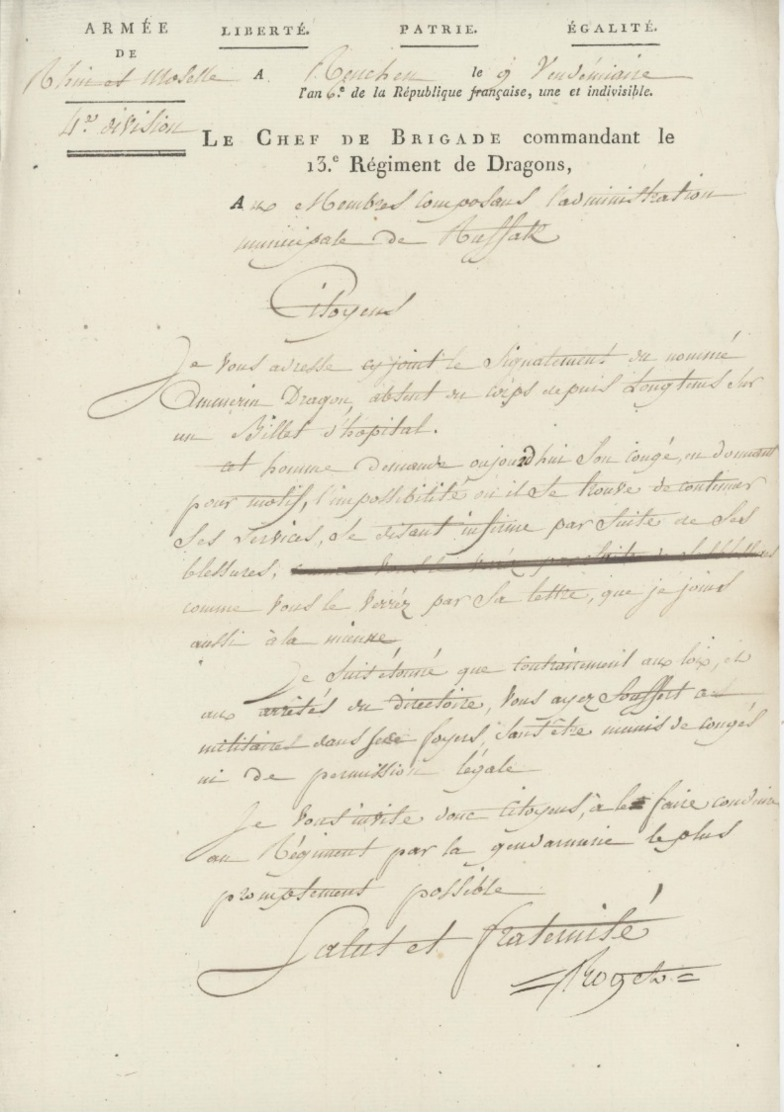 ARMÉE
DE
Rhin et Moselle
4.e division
LIBERTÉ. PATRIE. ÉGALITÉ.
A Renchen le 9 Vendémiaire
l'an 6.e de la République française, une et indivisible.
LE CHEF DE BRIGADE commandant le
13.e Régiment de Dragons,
Aux Membres Composans l'administration
municipale de Ruffak
Citoyens
Je vous adresse cy joint le Signalement du nommé
Dragon, absent du corps depuis Longtems Sur
un Billet d'hopital.
cet homme demande aujourd'hui Son congé, en donnant
pour motif, l'impossibilité où il Se trouve de continuer
Ses Services, Se disant infirme par Suite de Ses
blessures,
comme vous le verréz par Sa lettre, que je joins
aussi à la mienne
Je Suis étonné que Contrairement aux loix, et
aux arrêtés du directoire, vous ayez Souffert ce
militaire dans Ses foyers, Sans être munis de congés
ni de permission légale
Je vous invite donc Citoyens, à le faire conduire
au Régiment par la gendarmerie le plus
promptement possible
Salut et fraternité
Roget